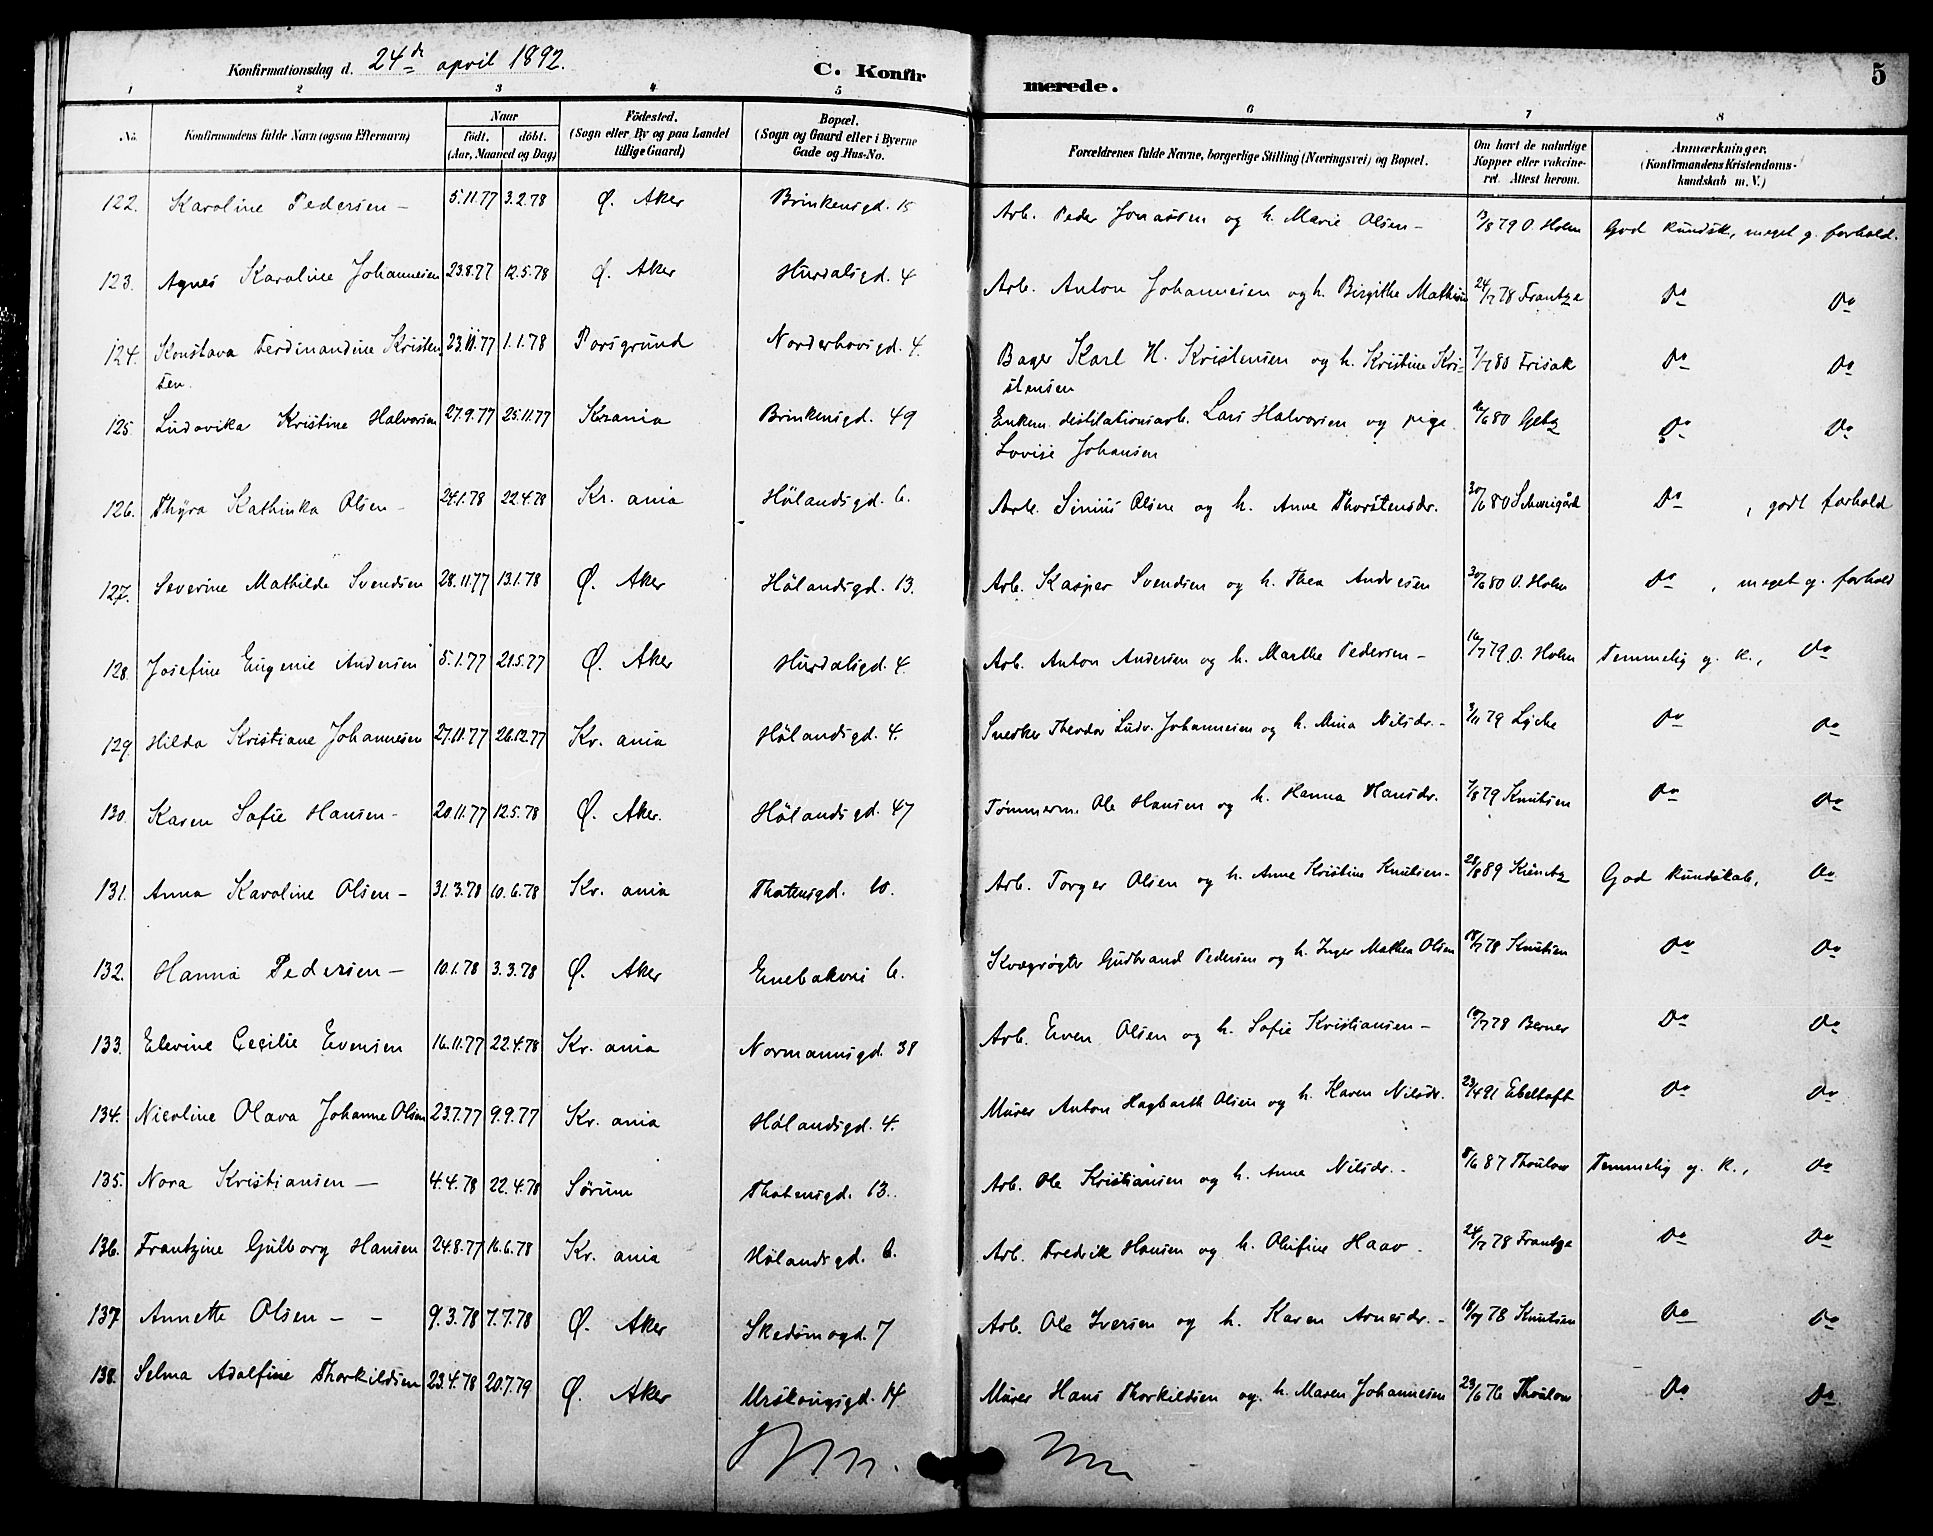 Konfirmationsdag d. 24de april 1892.
C. Konfirmerede.
5
1 2 3 4 5 6 7 8
No. Konfirmandens fulde Navn (ogsaa Efternavn) Naar født. døbt. (Aar, Maaned og Dag) Fødested. (Sogn eller By og paa Landet tillige Gaard) Bopæl. (Sogn og Gaard eller i Byerne Gade og Hus-No. Forældrenes fulde Navne, borgerlige Stilling (Næringsvei) og Bopæl. Om havt de naturlige Kopper eller vakcineret. Attest herom. Anmærkninger. (Konfirmandens Kristendomskundskab m. V.)
122. Karoline Pedersen - 5.11.77 3.2.78 Ø. Aker Brinkensgd. 15 Arb. Peder Jonassen og h. Marie Olsen - 79 O. Holm God kundsk., meget g. forhold.
123. Agnes Karoline Johannesen 23.8.77 12.5.78 Ø. Aker Hurdalsgd. 4 Arb. Anton Johannesen og h. Birgithe Mathisen 24/7 78 Frantze Do Do
124. Konstava Ferdinandine Kristen 23.11.77 1.1.78 Porsgrund Norderhovsgd. 4. Bager Karl H. Kristensen og h. Kristine Kri- 7/7 80 Frisak Do Do
sen. stensen
125. Ludovika Kristine Halvorsen 27.9.77 25.11.77 Krania Brinkensgd. 49 Enkem. distilationsarb. Lars Halvorsen og pige 80 Getz Do Do
Lovise Johansen
126. Thyra Kathinka Olsen - 24.1.78 22.4.78 Kr. ania Hölandsgd. 6. Arb. Simin Olsen og h. Anne Thorstensdr. 30/6 80 Schweigård Do , godt forhold
127. Severine Mathilde Svendsen 28.11.77 13.1.78 Ø. Aker Hølandsgd. 13. Arb. Kasper Svendsen og h. Thea Andresen 30/6 80 O. Holm Do , meget g. forhold
128. Josefine Eugenie Andersen 5.1.77 21.5.77 Ø. Aker Hurdalsgd. 4. Arb. Anton Andersen og h. Marthe Pedersen - 16/7 79 O. Holm Temmelig g. k., Do
129. Hilda Kristiane Johannesen 27.11.77 26.12.77 Kr. ania Hølandsgd. 4. Snedker Theodor Ludv. Johannesen og h. Mina Nilsdr. - 79 Lyche Do Do
130. Karen Sofie Hansen - 20.11.77 12.5.78 Ø. Aker. Hølandsgd. 47 Tømmerm. Ole Hansen og h. Hanna Hansdr. 7/8 79 Knutsen Do Do
131. Anna Karoline Olsen - 31.3.78 10.6.78 Kr. ania Thotensgd. 10. Arb. Torger Olsen og h. Anne Kristine Knutsen - 28/8 89 Kuntz God kundskab, Do
132. Hanna Pedersen - 10.1.78 3.3.78 Ø. Aker Enebakvei 6. Kvægrøgter Gudbrand Pedersen og h. Inger Mathea Olsen 18/7 78 Knutsen Do Do
133. Elevine Cecilie Evensen 16.11.77 22.4.78 Kr. ania Normannsgd. 38 Arb. Even Olsen og h. Sofie Kristiansen - 78 Berner Do Do
134. Nicoline Olava Johanne Olsen 23.7.77 9.9.77 Kr. ania Hølandsgd. 4. Murer Anton Hagbarth Olsen og h. Karen Nilsdr. 23/4 91 Ebeltoft Do Do
135. Nora Kristiansen - 4.4.78 22.4.78 Sørum Thotensgd. 13. Arb. Ole Kristiansen og h. Anne Nilsdr. - 8/6 87 Thoulow Temmelig g. k., Do
136. Frantzine Gulborg Hansen 24.8.77 16.6.78 Kr. ania Hølandsgd. 6. Arb. Fredrik Hansen og h. Olufine Haav - 24/7 78 Frantze Do Do
137. Annette Olsen - - 9.3.78 7.7.78 Ø. Aker Skedsmogd. 7 Arb. Ole Iversen og h. Karen Arnesdr. - 78 Knutsen Do Do
138. Selma Adolfine Thorkildsen 23.4.78 20.7.79 Ø. Aker Urskougsgd. 14 Murer Hans Thorkildsen og h. Maren Johannesen 23/6 76 Thoulow Do Do